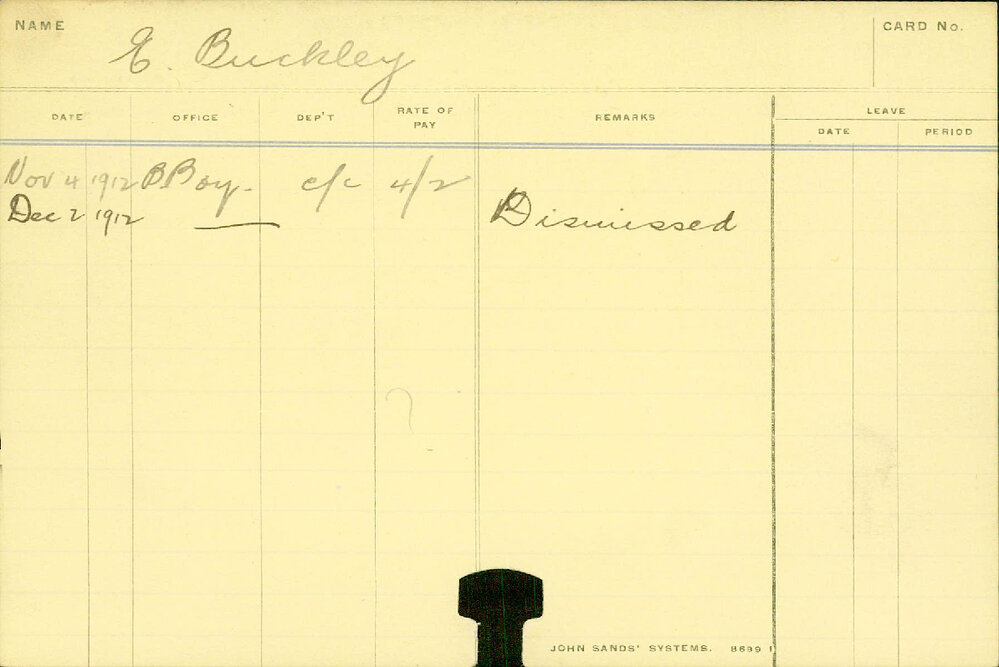 NAME E. Buckley CARD No.
DATE OFFICE DEP'T RATE OF PAY REMARKS LEAVE
DATE PERIOD
Nov 4 1912 B Boy. c/c 4/2
Dec 2 1912 — Dismissed
?
JOHN SANDS' SYSTEMS. 8699 1